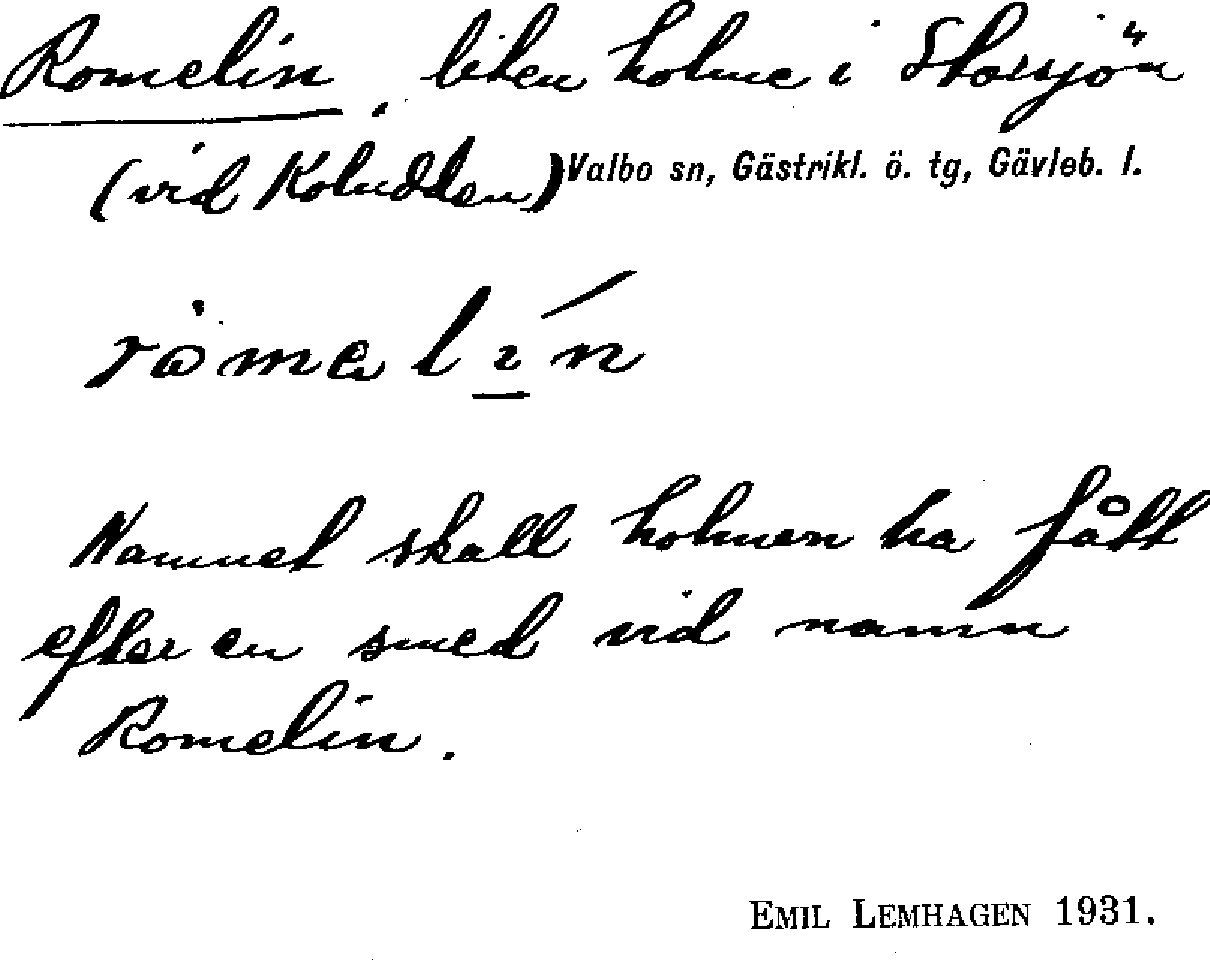 Romelin, liten holme i Storsjön
(vid Koludden) Valbo sn, Gästrikl. ö. tg, Gävleb. l.
råmelín
Namnet skall holmen ha fått
efter en smed vid namn
Romelin.
EMIL LEMHAGEN 1931.